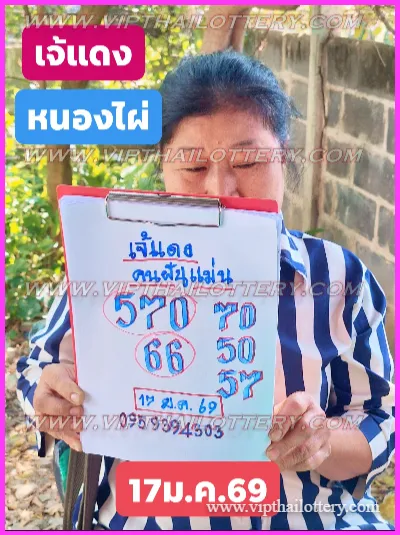 WWW.VIPTHAILOTTERY.COM
เจ๊แดง
หนองไผ่
WWW.VIPTHAILOTTERY.COM
เจ๊แดง
คนฝันแม่น
WWW.VIPTHAILOTTERY.COM
570 70
66 50
57
17 ม.ค. 69
WWW.VIPTHAILOTTERY.COM
0959394503
17ม.ค.69
www.vipthailottery.com